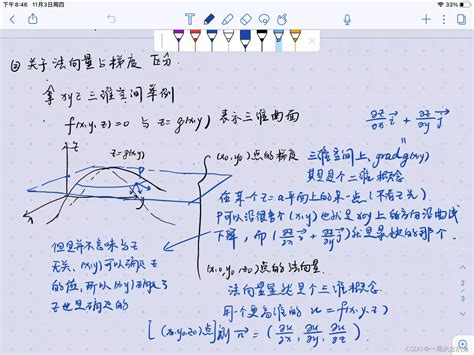 下午8:46 11月3日周四
33%
② 关于法向量与梯度 区分
拿xyz三维空间举例
f(x,y,z)=0 与 z=g(x,y) 表示三维曲面
∂z/∂x i + ∂z/∂y j
z
z=g(x,y)
P
x
y
(x0,y0)点的梯度 三维空间上, grad g(x,y)
其是是个二维概念
在某个z=a平面上的某一点(不看z先)
P可以沿很多个(x,y)也就是xoy上的方向沿曲线
下降,而(∂z/∂x i + ∂z/∂y j)就是最快的那个.
但是并不意味与z
无关,(x,y)可以确定z
的值,所以(x,y)确定了
z也是确定的
(x0,y0,z0)点的法向量.
法向量显然是个三维概念.
用一个更高维的 u=f(x,y,z)
[(x0,y0,z0)点]则 n=(∂u/∂x, ∂u/∂y, ∂u/∂z)
2/3